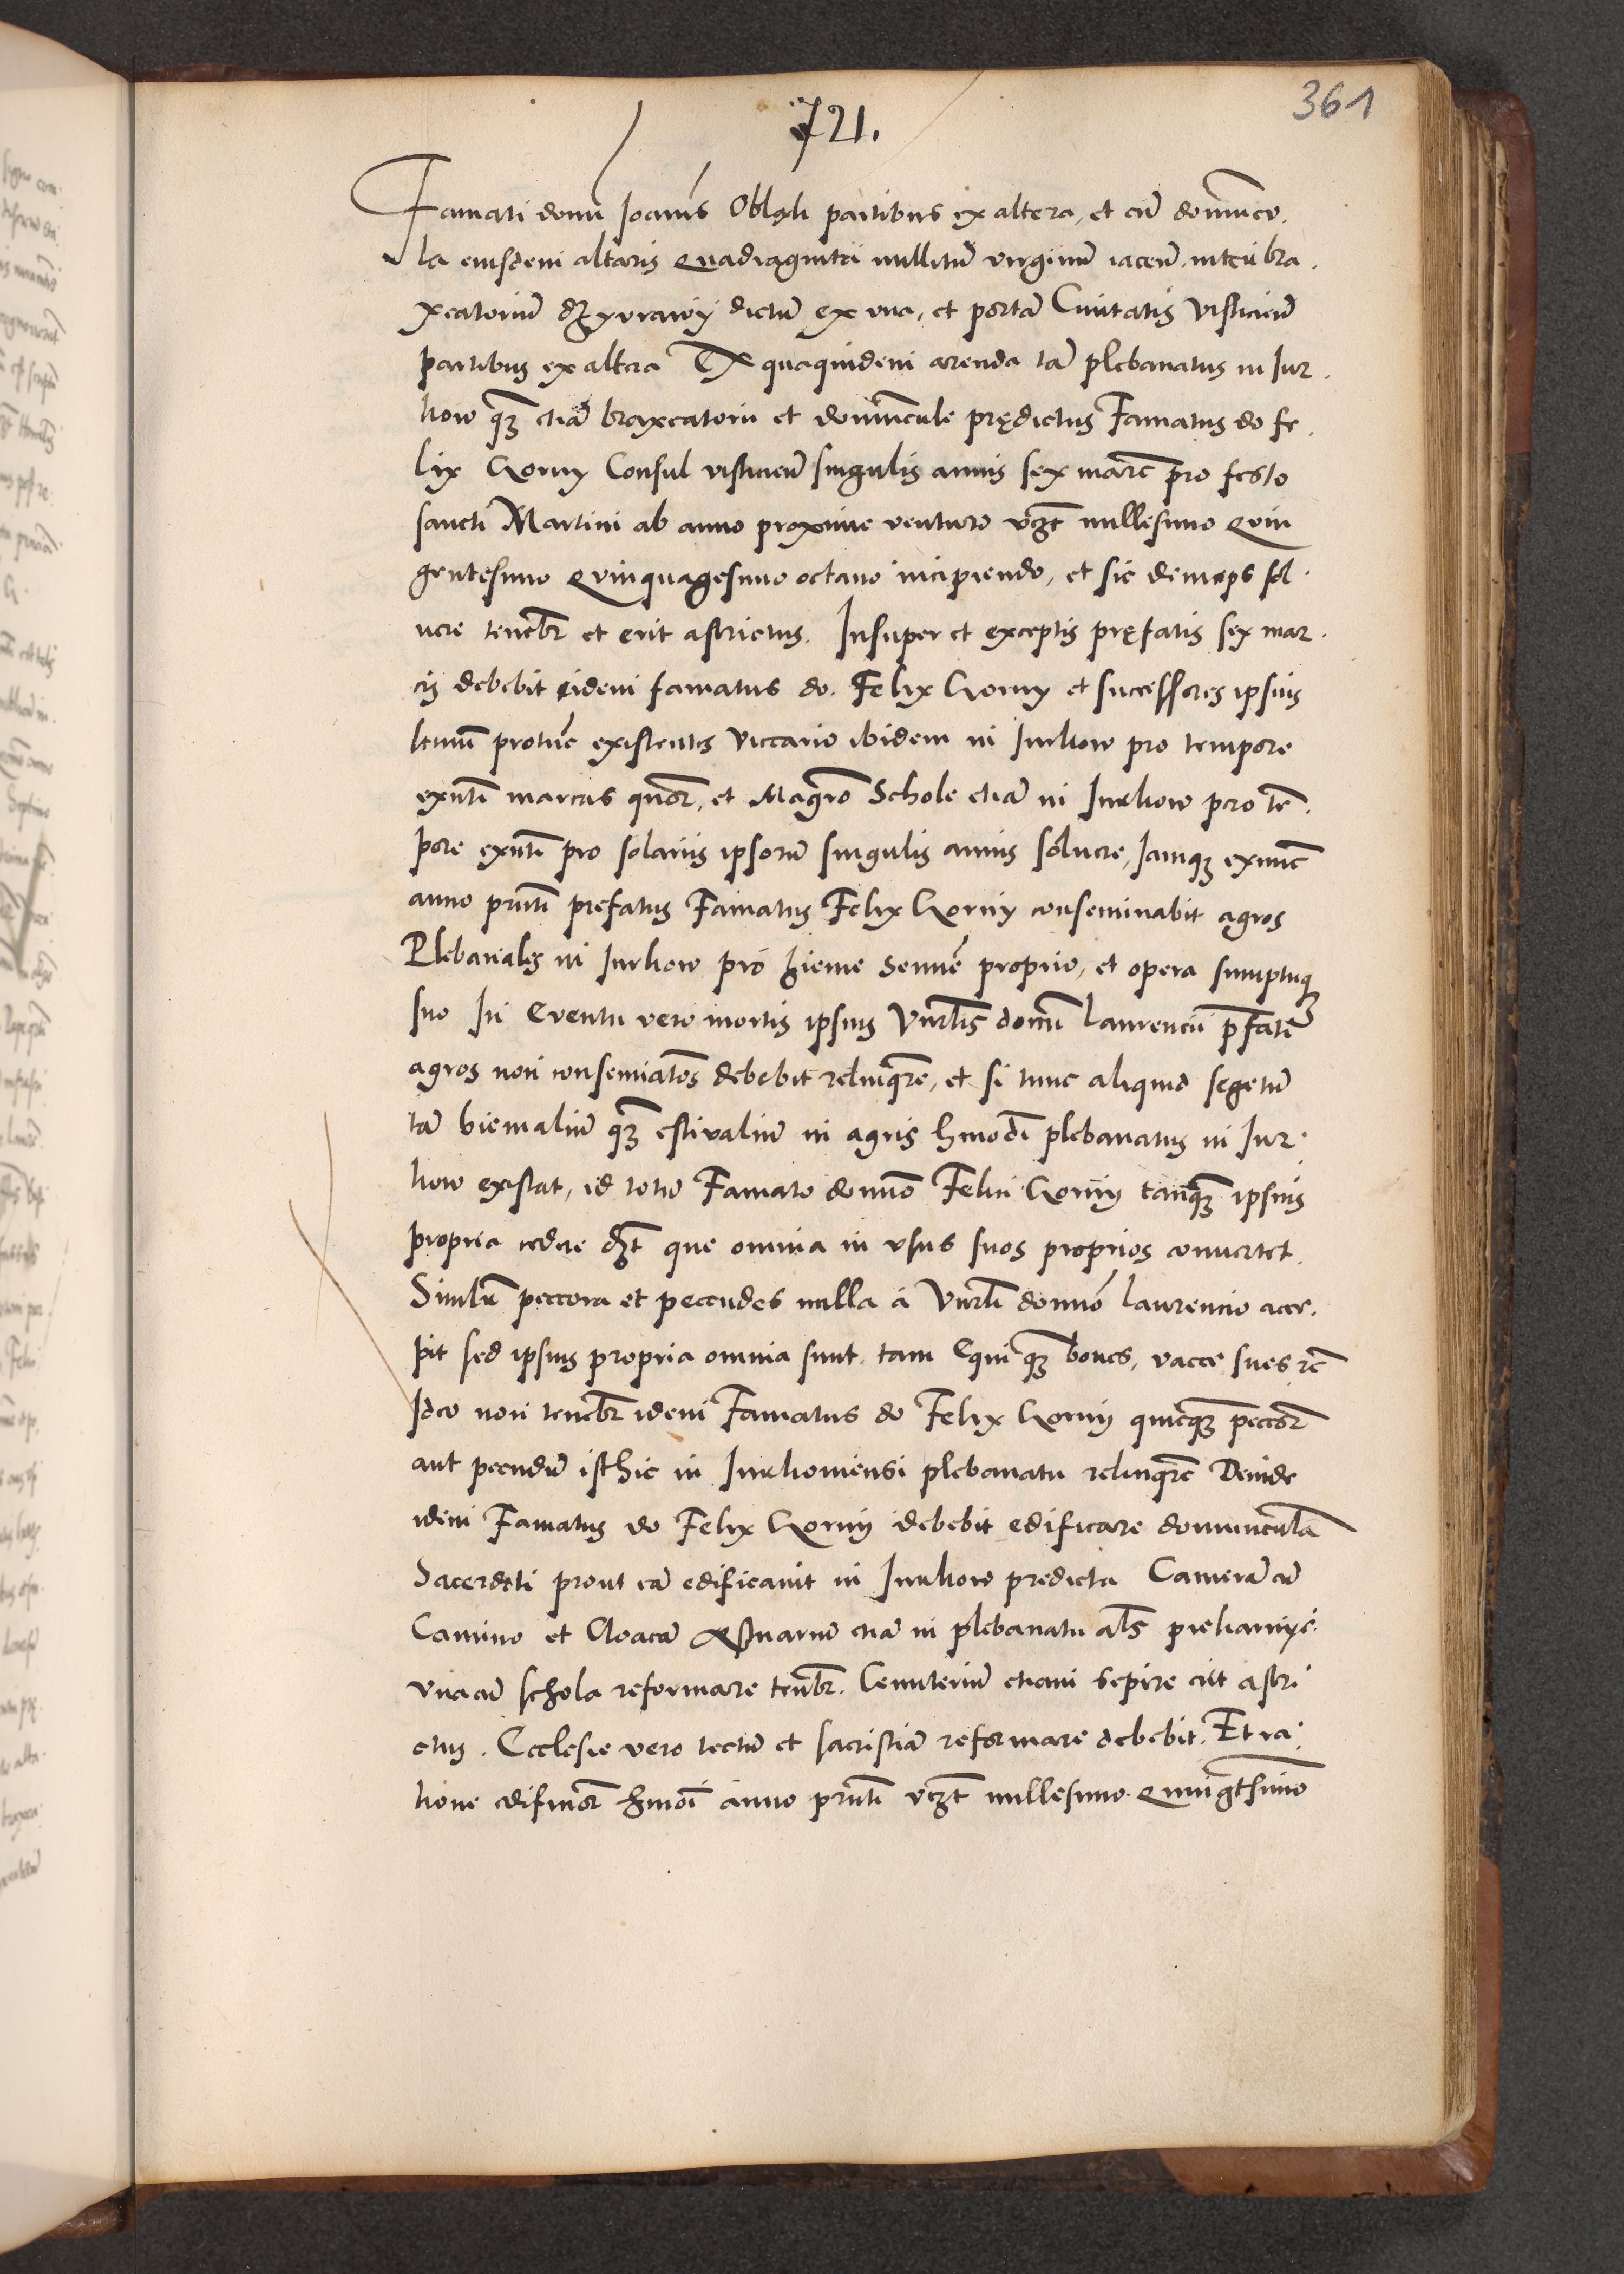 361
721.
Famati domi Joannis Obląk partibus ex altera, et cum domunco.
la eiusdem altaris Quadraginta millitum virginum iacen. inter bra.
xeatorium dzyurawy dictum ex una, et portam Civitatis Visliciens
partibus ex altera Ex quaquidem arenda tam plebanatus in Jur.
kow quam etiam braxeatorii et domuncule prędictus Famatus do fe.
lix Gorny Consul visliciens singulis annis sex marc pro festo
sancti Martini ab anno proxime venturo vczt millesimo Quin
gentesimo Quinquagesimo octavo incipiendo, et sic deinceps sol.
vere tenebr et erit astrictus. Insuper et exceptis pręfatis sex mar.
cis debebit eidem famatus do. Felix Gorny et successores ipsius
protunc existentes viccario ibidem in Jurkow pro tempore
exnti marcas quor, et Magro Schole etiam in Jurkow pro tem.
pore exnti pro solariis ipsorum singulis annis solvere, Jamque exnunc
anno prnti prefatus Famatus Felix Gorny conseminabit agros
Plebaniales in Jurkow pro hieme Semine proprio, et opera sumptuque
suo In Eventu vero mortis ipsius Vnrlis domi Laurencii pfati
agros non conseminatos debebit relinqre, et si tunc aliquid segetum
tam hiemalium quam estivalium in agris hmodi plebanatus in Jur.
kow existat, id totum Famato domino Felici Gorny tanquam ipsius
propria cedere dzt que omnia in usus suos proprios convertet.
Similr peccora et peccudes nulla a Vnrli domino Laurencio acce.
pit sed ipsius propria omnia sunt. tam Equi quam boves, vacce sues rc
Ideo non tenebr idem Famatus do Felix Gorny quicquam peccor
aut pecudum isthic in Jurkoviensi plebanatu relinqre Deinde
idem Famatus do Felix Gorny debebit edificare domunculam
Sacerdoti prout eam edificavit in Jurkow predicta Cameram cum
Camino et Cloacam Estuarium etiam in plebanatu als piekarnye.
unacum schola reformare tenebr. Cemiterium etiam sepire erit astri
ctus. Ecclesie vero tectum et sacristiam reformare debebit. Et ra.
tione edificior hmoi anno prnti vczt millesimo Quingtsimo